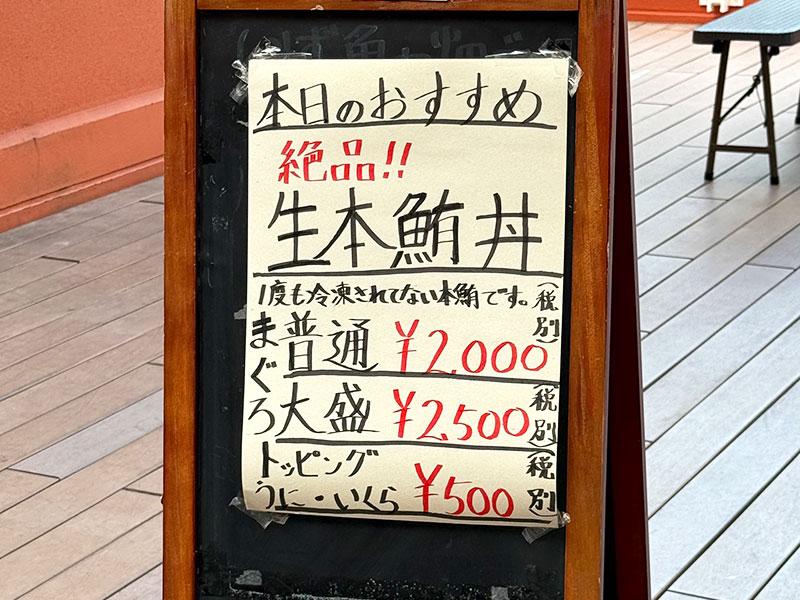 本日のおすすめ
絶品!!
生本鮪丼
1度も冷凍されてない本鮪です。
まぐろ
普通 ¥2,000 (税別)
大盛 ¥2,500 (税別)
トッピング
うに・いくら ¥500 (税別)